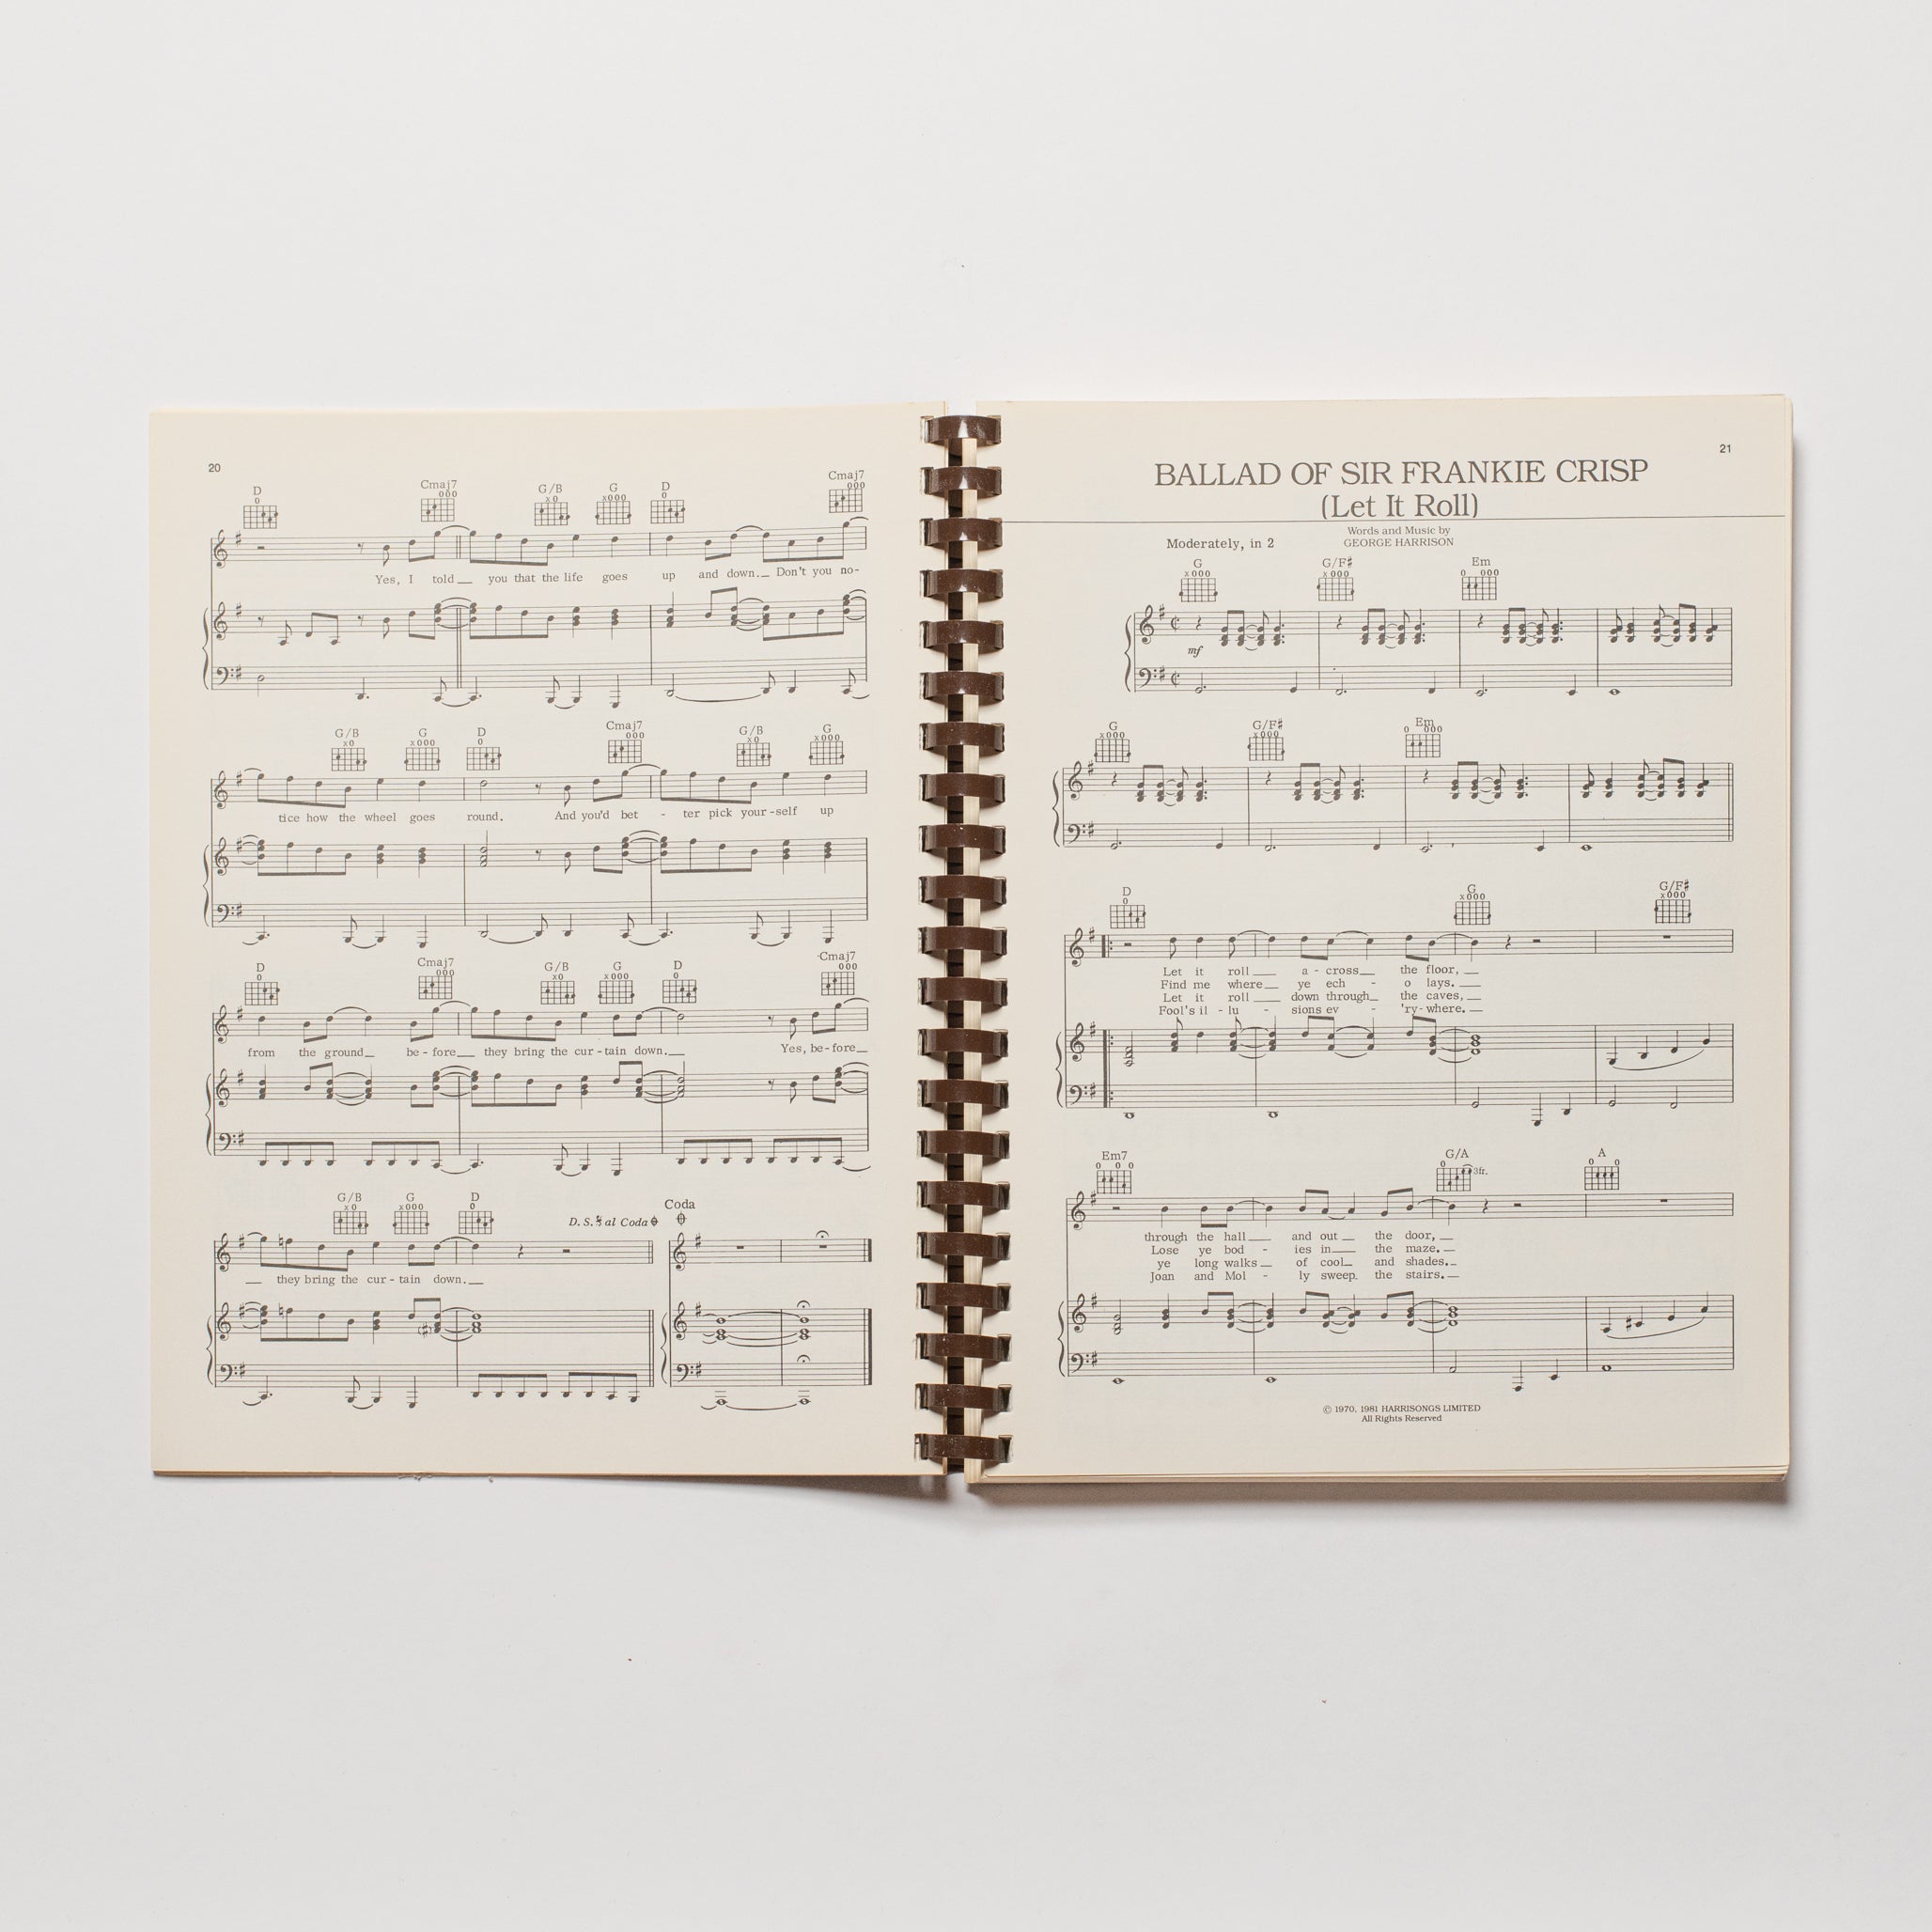 20
D Cmaj7 G/B G D Cmaj7
Yes, I told__ you that the life goes up and down.__ Don't you no-
G/B G D Cmaj7 G/B G
tice how the wheel goes round. And you'd bet - ter pick your-self up
D Cmaj7 G/B G D Cmaj7
from the ground__ be-fore__ they bring the cur-tain down.__ Yes, be-fore__
G/B G D D.S. al Coda Coda
__ they bring the cur-tain down.__
21
BALLAD OF SIR FRANKIE CRISP
(Let It Roll)
Words and Music by
GEORGE HARRISON
Moderately, in 2
G G/F♯ Em
mf
G G/F♯ Em
D G G/F♯
Let it roll__ a - cross__ the floor,__
Find me where__ ye ech - o lays.__
Let it roll__ down through__ the caves,__
Fool's il - lu - sions ev - 'ry-where.__
Em7 G/A A
3fr.
through the hall__ and out__ the door,__
Lose ye bod - ies in__ the maze.__
ye long walks__ of cool__ and shades.__
Joan and Mol - ly sweep. the stairs.__
© 1970, 1981 HARRISONGS LIMITED
All Rights Reserved